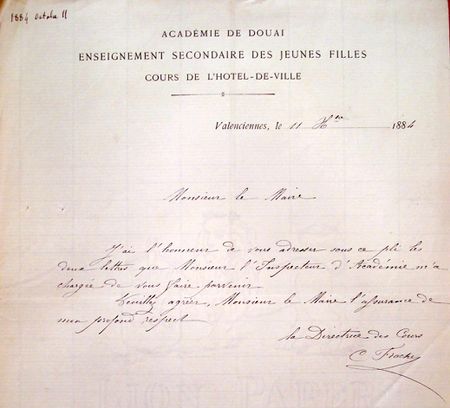 1884 octobre 11
ACADÉMIE DE DOUAI
ENSEIGNEMENT SECONDAIRE DES JEUNES FILLES
COURS DE L'HOTEL-DE-VILLE
Valenciennes, le 11 1884
Monsieur le Maire
J'ai l'honneur de vous adresser sous ce pli les
deux lettres que Monsieur l'Inspecteur d'Académie m'a
chargée de vous faire parvenir
Veuillez agréer, Monsieur le Maire l'assurance de
mon profond respect
la Directrice des Cours
C.